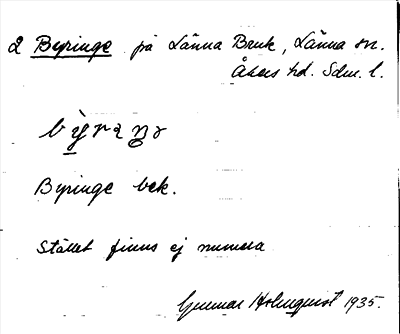 2 Byringe på Länna Bruk, Länna sn.
Åkers hd. Sdm. l.
Byringe bek.
Stället finns ej numera
Gunnar Holmquist 1935.